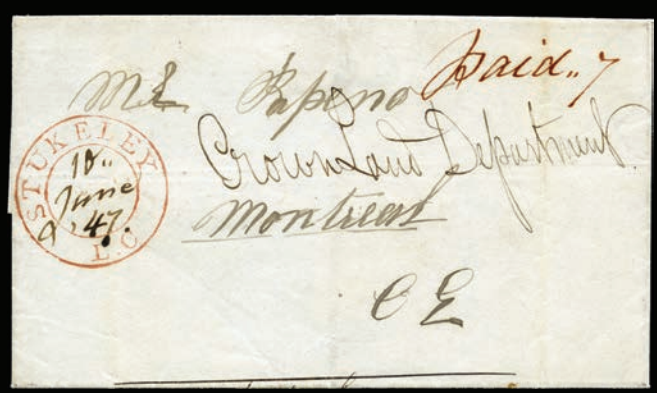 Paid,, 7
Mr Papino
Crown Land Department
Montreal
C E
STUKELEY
10,,
June
47.
L.C